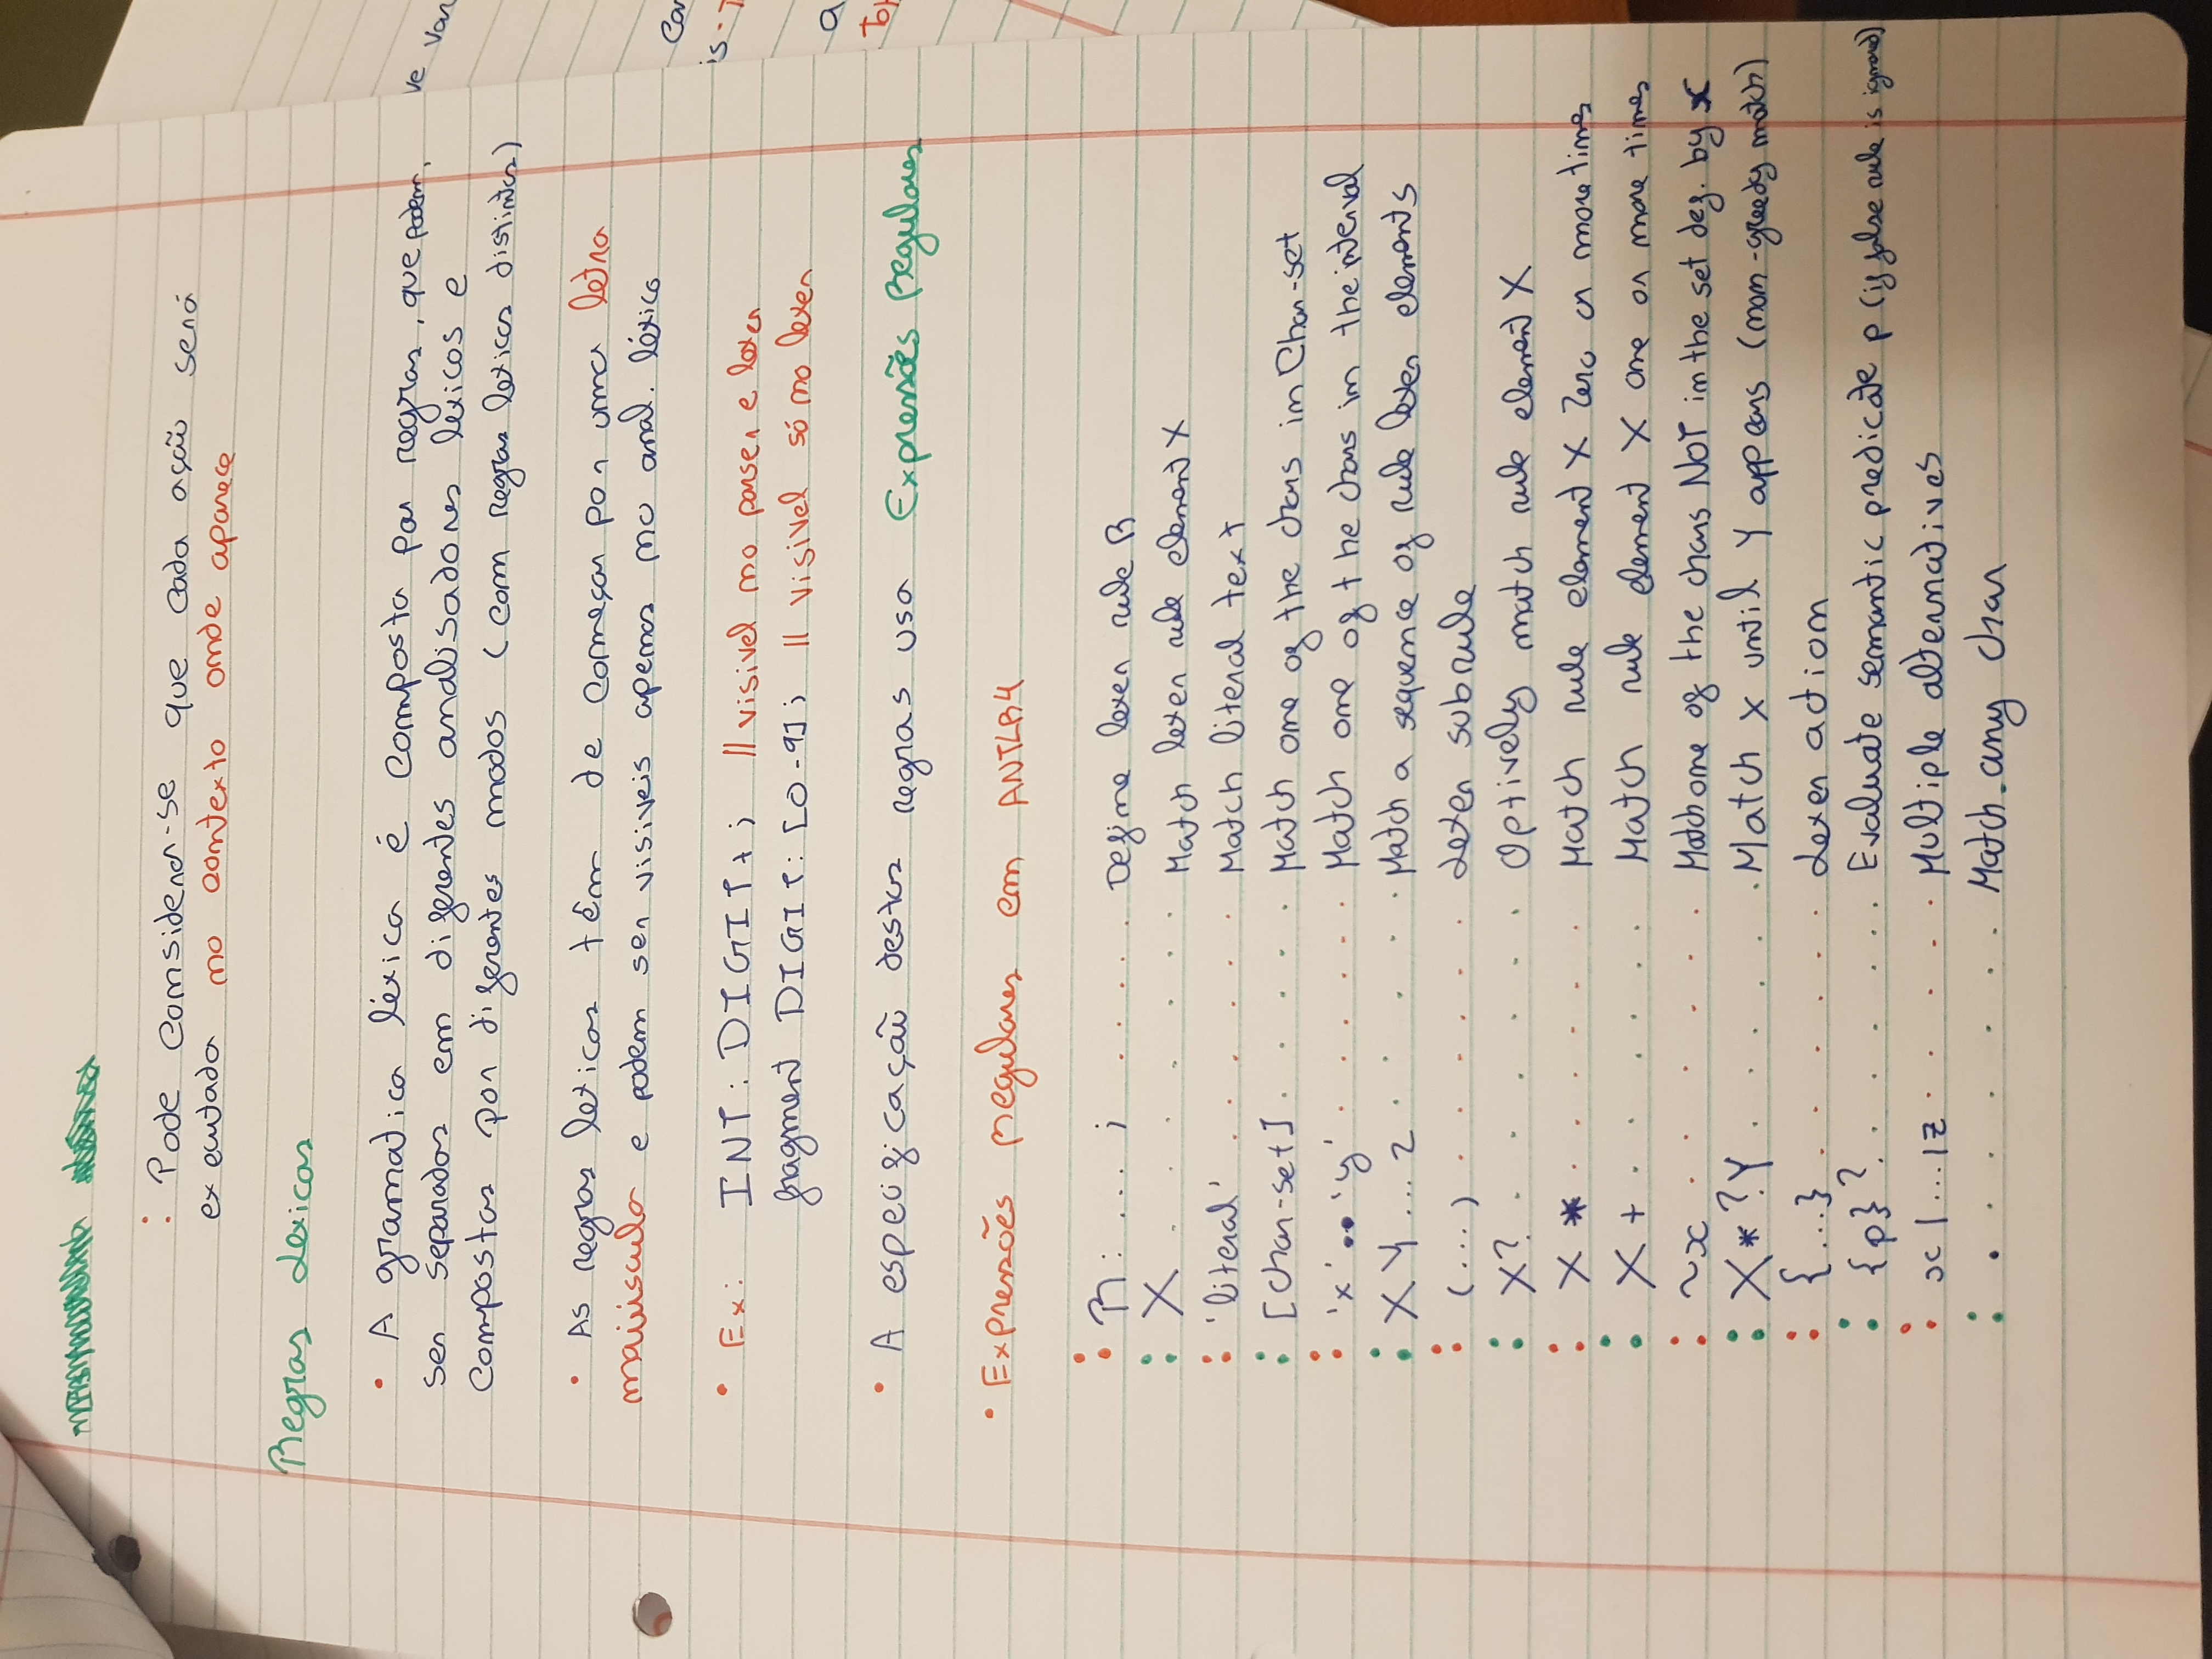 : Pode considerar-se que cada ação será
executada no contexto onde aparece
Regras Lexicas
• A gramatica léxica é composta por regras, que podem,
ser separados em diferentes analisadores lexicos e
compostas por diferentes modos (com regras lexicas distintas)
• As regras lexicas têm de começar por uma letra
maiúscula e podem ser visiveis apenas no anal. léxico
• Ex: INT: DIGIT+; // visivel no parser e lexer
fragment DIGIT: [0-9]; // visivel só no lexer
• A especificação destas regras usa Expressões Regulares
• Expressões Regulares em ANTLR4
: R: ... ; ..... Define lexer rule R
: X ....... Match lexer rule element X
: 'literal' ..... Match literal text
: [char-set] ..... Match one of the chars in Char-set
: 'x'..'y' ...... Match one of the chars in the interval
: X Y ... Z ..... Match a sequence of rule lexer elements
: (...) ...... Lexer subrule
: X? ...... Optively match rule element X
: X * ...... Match rule element X Zero or more times
: X + ...... Match rule element X one or more times
: ~x ...... Match one of the chars NOT in the set def. by x
: X*?Y ...... Match X until Y appears (non-greedy match)
: {...} ...... Lexer action
: {p}? ....... Evaluate semantic predicate p (if false rule is ignored)
: x |...|z ..... Multiple alternatives
: . ...... Match any char
ve var
is.
a